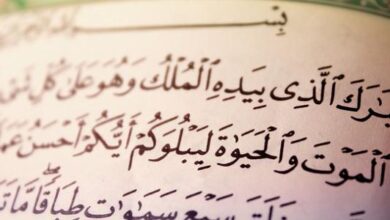 بِسْمِ
بَٰرَكَ ٱلَّذِى بِيَدِهِ ٱلْمُلْكُ وَهُوَ عَلَىٰ كُلِّ شَىْ
ٱلْمَوْتَ وَٱلْحَيَوٰةَ لِيَبْلُوَكُمْ أَيُّكُمْ أَحْسَنُ عَمَ
سَبْعَ سَمَٰوَٰتٍ طِبَاقًا مَّا تَ